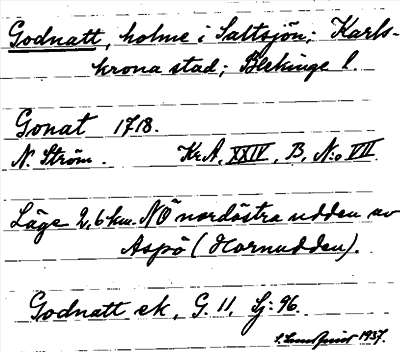 Godnatt, holme i Saltsjön; Karls-
krona stad; Blekinge l.
Gonat 1718.
N. Ström. Kr.A, XXIV, B, N:o VII
Läge 2,6 km. NÖ nordöstra udden av
Aspö (Hornudden).
Godnatt ek, G. 11, Sj: 96.
1937.